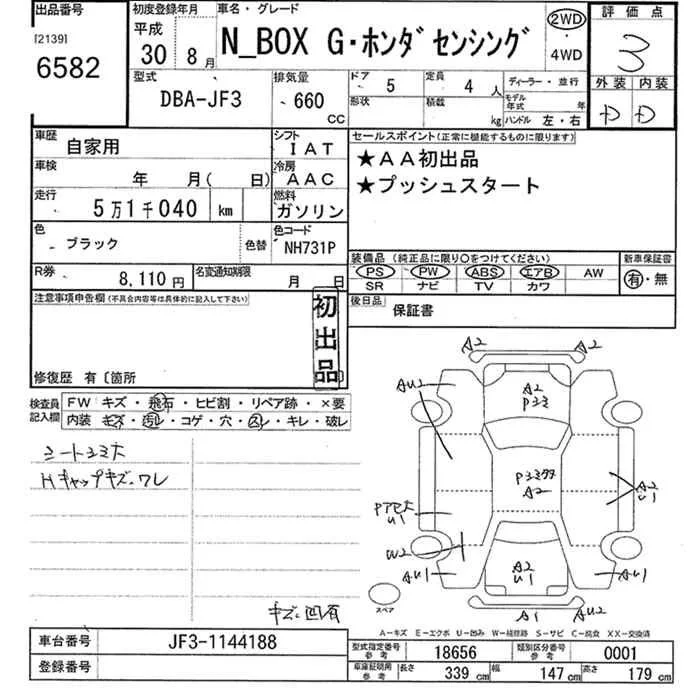 出品番号
[2139]
6582
初度登録年月
平成
30 8月
車名・グレード
N_BOX G・ホンダセンシング
2WD
4WD
評価点
3
外装 内装
D D
型式
DBA-JF3
排気量
660
CC
ドア 5
定員 4 人
形状
積載 kg
ディーラー・並行
モデル年式 年
ハンドル 左・右
車歴
自家用
シフト
IAT
車検
年 月( 日)
冷房
AAC
走行
5万1千040 km
燃料
ガソリン
色
ブラック
色替
色コード
NH731P
R券
8,110円
名変通知期限
月 日
セールスポイント(正常に機能するものに限ります)
★AA初出品
★プッシュスタート
装備品 (純正品に限り〇をつけてください)
PS PW ABS エアB AW
SR ナビ TV カワ
新車保証書
有・無
後日品
保証書
注意事項申告欄(不具合内容等は具体的に記入して下さい)
初出品
修復歴 有〔箇所 〕
検査員記入欄
FW キズ・飛石・ヒビ割・リペア跡・×要
内装 キズ・汚レ・コゲ・穴・スレ・キレ・破レ
シートシミ大
Hキャップキズ.ワレ
キズ凹有
A2 A2
AU2
A2
Pシミ
A2
A2
U1
U1
W2
AU1
A2
U1
AU1
A1 AU2
スペア
A-キズ E-エクボ U-凹み W-補修跡 S-サビ C-腐食 XX-交換済
車台番号
JF3-1144188
登録番号
型式指定番号 参考
18656
類別区分番号 参考
0001
車庫証明用 参考
長さ 339 cm 幅 147 cm 高さ 179 cm